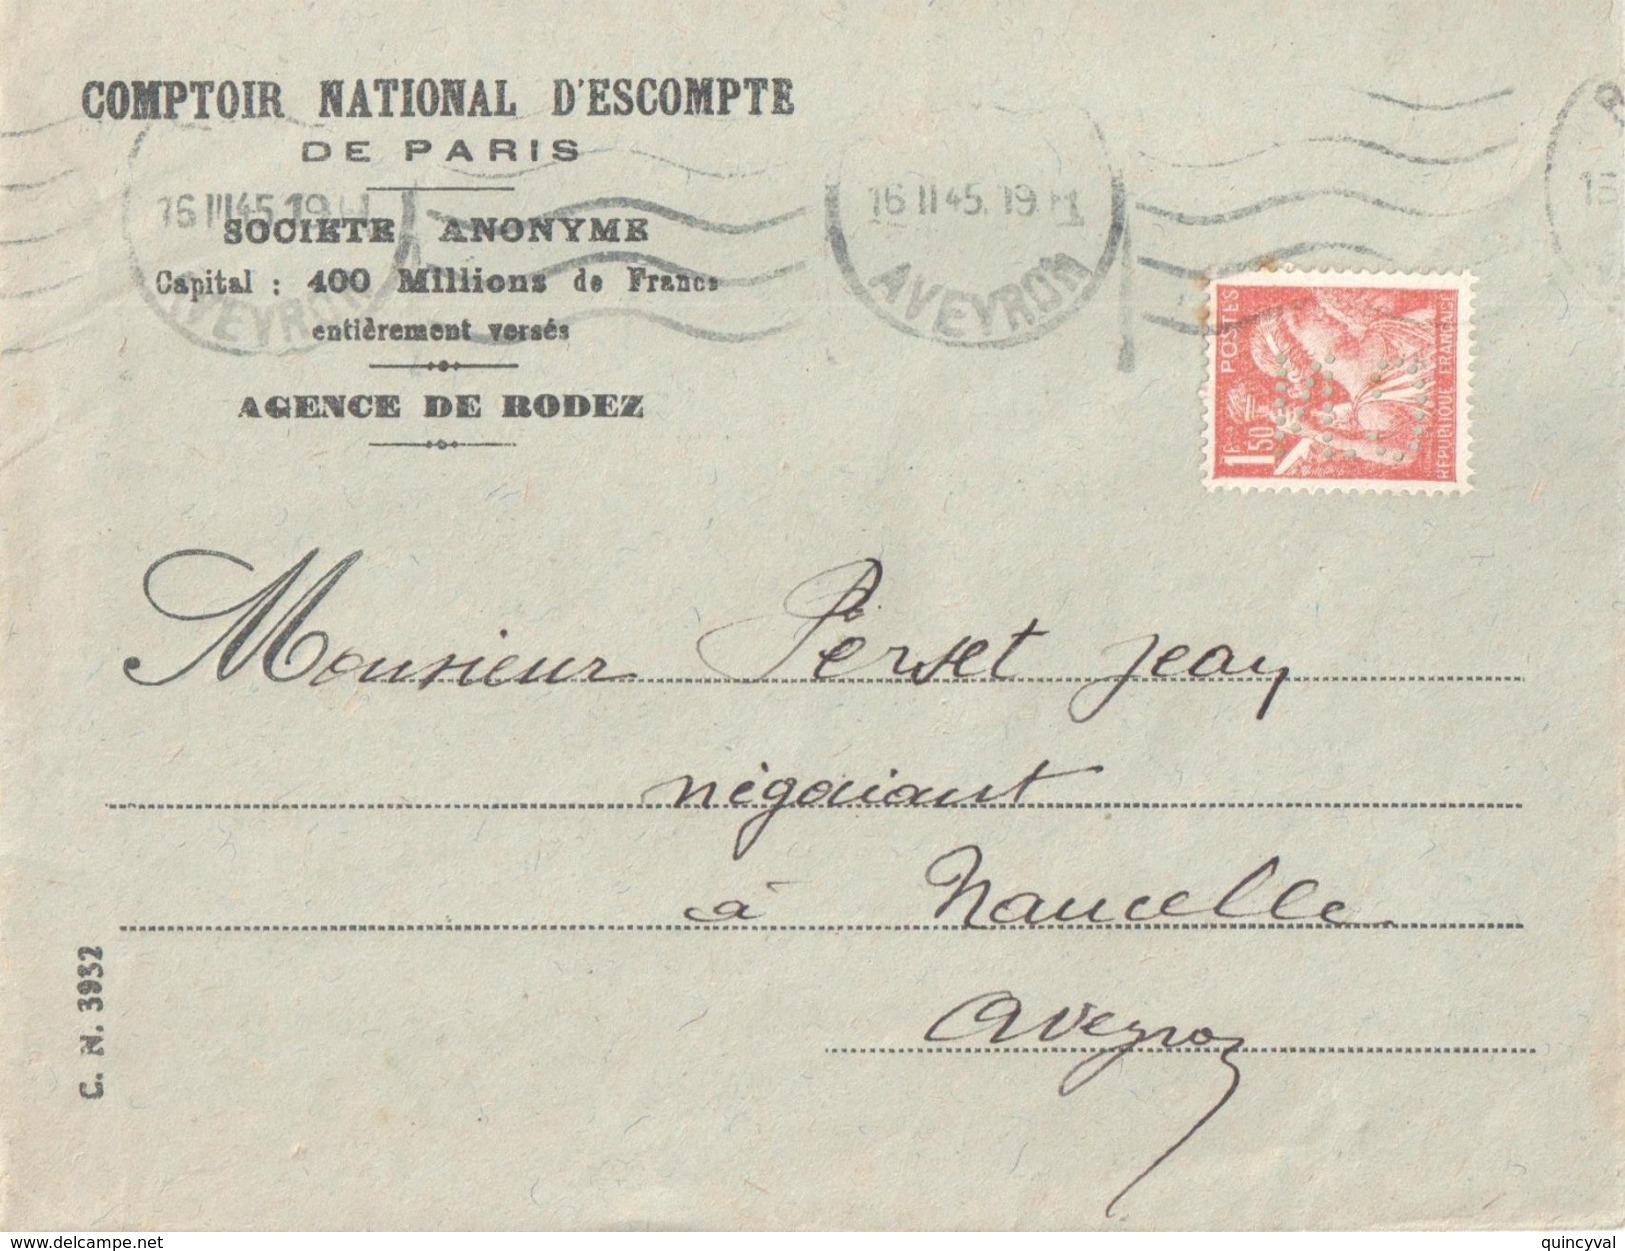 COMPTOIR NATIONAL D'ESCOMPTE
DE PARIS
SOCIETE ANONYME
Capital : 400 Millions de Francs
entièrement versés
AGENCE DE RODEZ
16 II 45. 19 H
AVEYRON
16 II 45. 19 H
AVEYRON
POSTES
1F50
REPUBLIQUE FRANÇAISE
Monsieur Perset Jean
négociant
à Naucelle
Aveyron
C. N. 3932
www.delcampe.net
quincyval